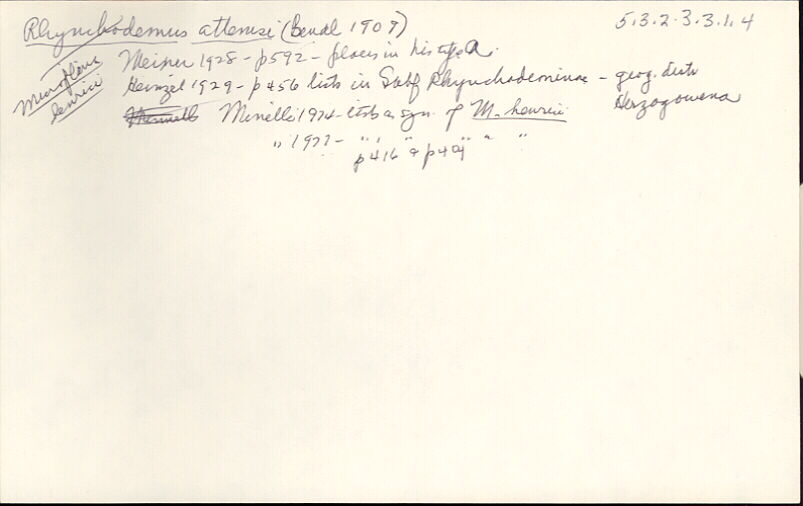 Rhynchodemus attemsi (Bendl 1909)
5.3.2.3.3.1.4
Microplana
henrici
Meixner 1928 - p592 - places in his type A.
Heinzel 1929 - p456 lists in Subf Rhynchodeminae - geog. distr
Herzogowena
Minelli 1974 - lists as syn. of M. henrici
" 1977 - " " " " "
p416 & p409